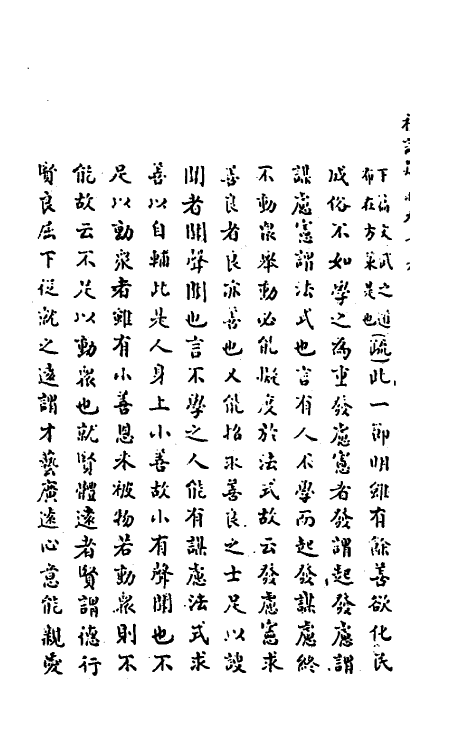 下篇文武之道
布在方策是也
疏此一節明雖有餘善欲化民
成俗不如學之為重發慮憲者發謂起發慮謂
謀慮憲謂法式也言有人不學而起發謀慮終
不動眾舉動必能擬度於法式故云發慮憲求
善良者良亦善也又能招求善良之士足以謏
聞者聞聲聞也言不學之人能有謀慮法式求
善以自輔此是人身上小善故小有聲聞也不
足以動眾者雖有小善恩未被物若動眾則不
能故云不足以動眾也就賢體遠者賢謂德行
賢良屈下從就之遠謂才藝廣遠心意能親愛